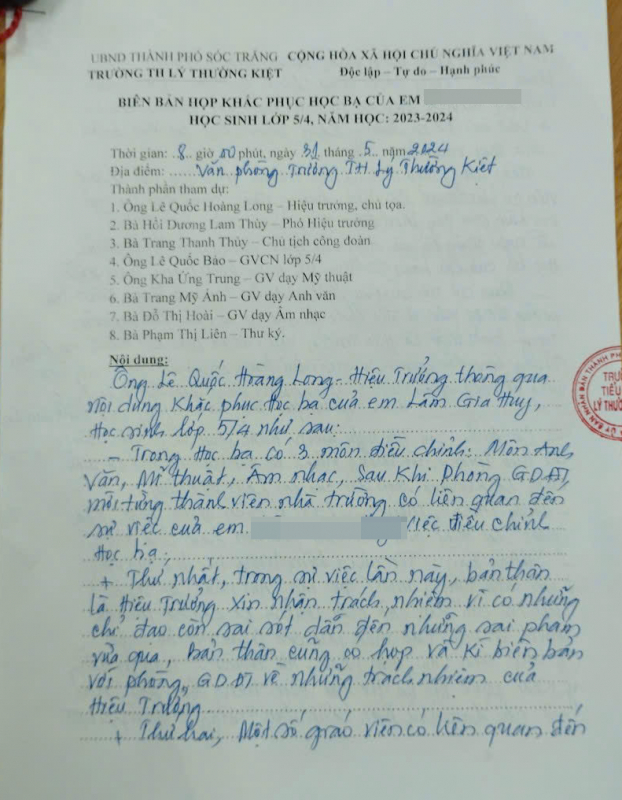 UBND THÀNH PHỐ SÓC TRĂNG CỘNG HÒA XÃ HỘI CHỦ NGHĨA VIỆT NAM
TRƯỜNG TH LÝ THƯỜNG KIỆT Độc lập – Tự do – Hạnh phúc
BIÊN BẢN HỌP KHẮC PHỤC HỌC BẠ CỦA EM
HỌC SINH LỚP 5/4, NĂM HỌC: 2023-2024
Thời gian: 8 giờ 00 phút, ngày 31 tháng 5 năm 2024
Địa điểm: Văn phòng Trường TH Lý Thường Kiệt
Thành phần tham dự:
1. Ông Lê Quốc Hoàng Long – Hiệu trưởng, chủ tọa.
2. Bà Hồi Dương Lam Thùy – Phó Hiệu trưởng
3. Bà Trang Thanh Thủy – Chủ tịch công đoàn
4. Ông Lê Quốc Bảo – GVCN lớp 5/4
5. Ông Kha Ứng Trung – GV dạy Mỹ thuật
6. Bà Trang Mỹ Ảnh – GV dạy Anh văn
7. Bà Đỗ Thị Hoài – GV dạy Âm nhạc
8. Bà Phạm Thị Liên – Thư ký.
Nội dung:
Ông Lê Quốc Hoàng Long - Hiệu Trưởng thông qua
nội dung Khắc phục học bạ của em Lâm Gia Huy,
học sinh lớp 5/4 như sau:
- Trong học bạ có 3 môn điều chỉnh: Môn Anh
Văn, Mĩ thuật, Âm nhạc, Sau Khi Phòng GDĐT
mời từng thành viên nhà trường có liên quan đến
sự việc của em việc điều chỉnh
học bạ.
+ Thứ nhất, trong sự việc lần này, bản thân
là Hiệu Trưởng xin nhận trách nhiệm vì có những
chỉ đạo còn sai sót dẫn đến những sai phạm
vừa qua, bản thân cũng có họp và kí biên bản
với phòng GDĐT về những trách nhiệm của
Hiệu Trưởng
+ Thứ hai, Một số giáo viên có liên quan đến